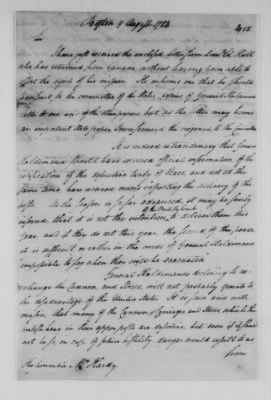 Boston 9 August 1784
415
I have just received the enclosed letter from Lieut. Col. Hull
who has returned from Canada without having been able to
effect the object of his mission. He informs me that he should
transmit to the committee of the States, copies of General Haldimand's
letter to me and of the other papers but as the letter may become
an important State paper I now forward the original to the committee
It is indeed extraordinary that General
Haldimand should have received official information of the
ratification of the definitive treaty of Peace and not at the
same time have received orders respecting the delivery of the
posts. As the season is so far advanced, it may be fairly
inferred, that it is not the intention to deliver them this
year and if they do not this year, the form of the peace
it is difficult or rather in the words of General Haldimand
"impossible to say when they will be evacuated"
General Haldimands declining to ex-
change the Cannon and Stores, will not probably operate to
the disadvantage of the United States. It is said and with
reason that many of the Cannon, Carriages and Stores, which the
british have in their upper posts are defective, but even if it should
not be so, in case of future hostility, danger would result to us
from
The honorable Mr. Hardy.